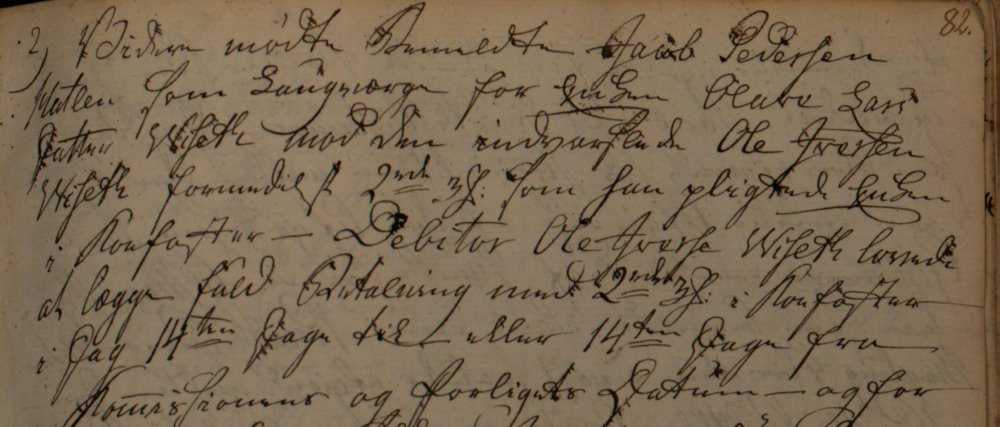 82.
2, Videre mødte Bemeldte Jacob Pedersen
som Laugværge for Enken Olava Lars
Datter Wiseth mod den indvarslede Ole Iversen
Wiseth formedelst 2rde 3ß. som han pligtede Enken
i Konfaster — Debitor Ole Iverse Wiseth lovede
at lægge fuld Betalning med 2rde 3ß. i Konfaster
i Dag 14ten Dage til eller 14ten Dage fra
Komissionens og Forligets Datum — og for